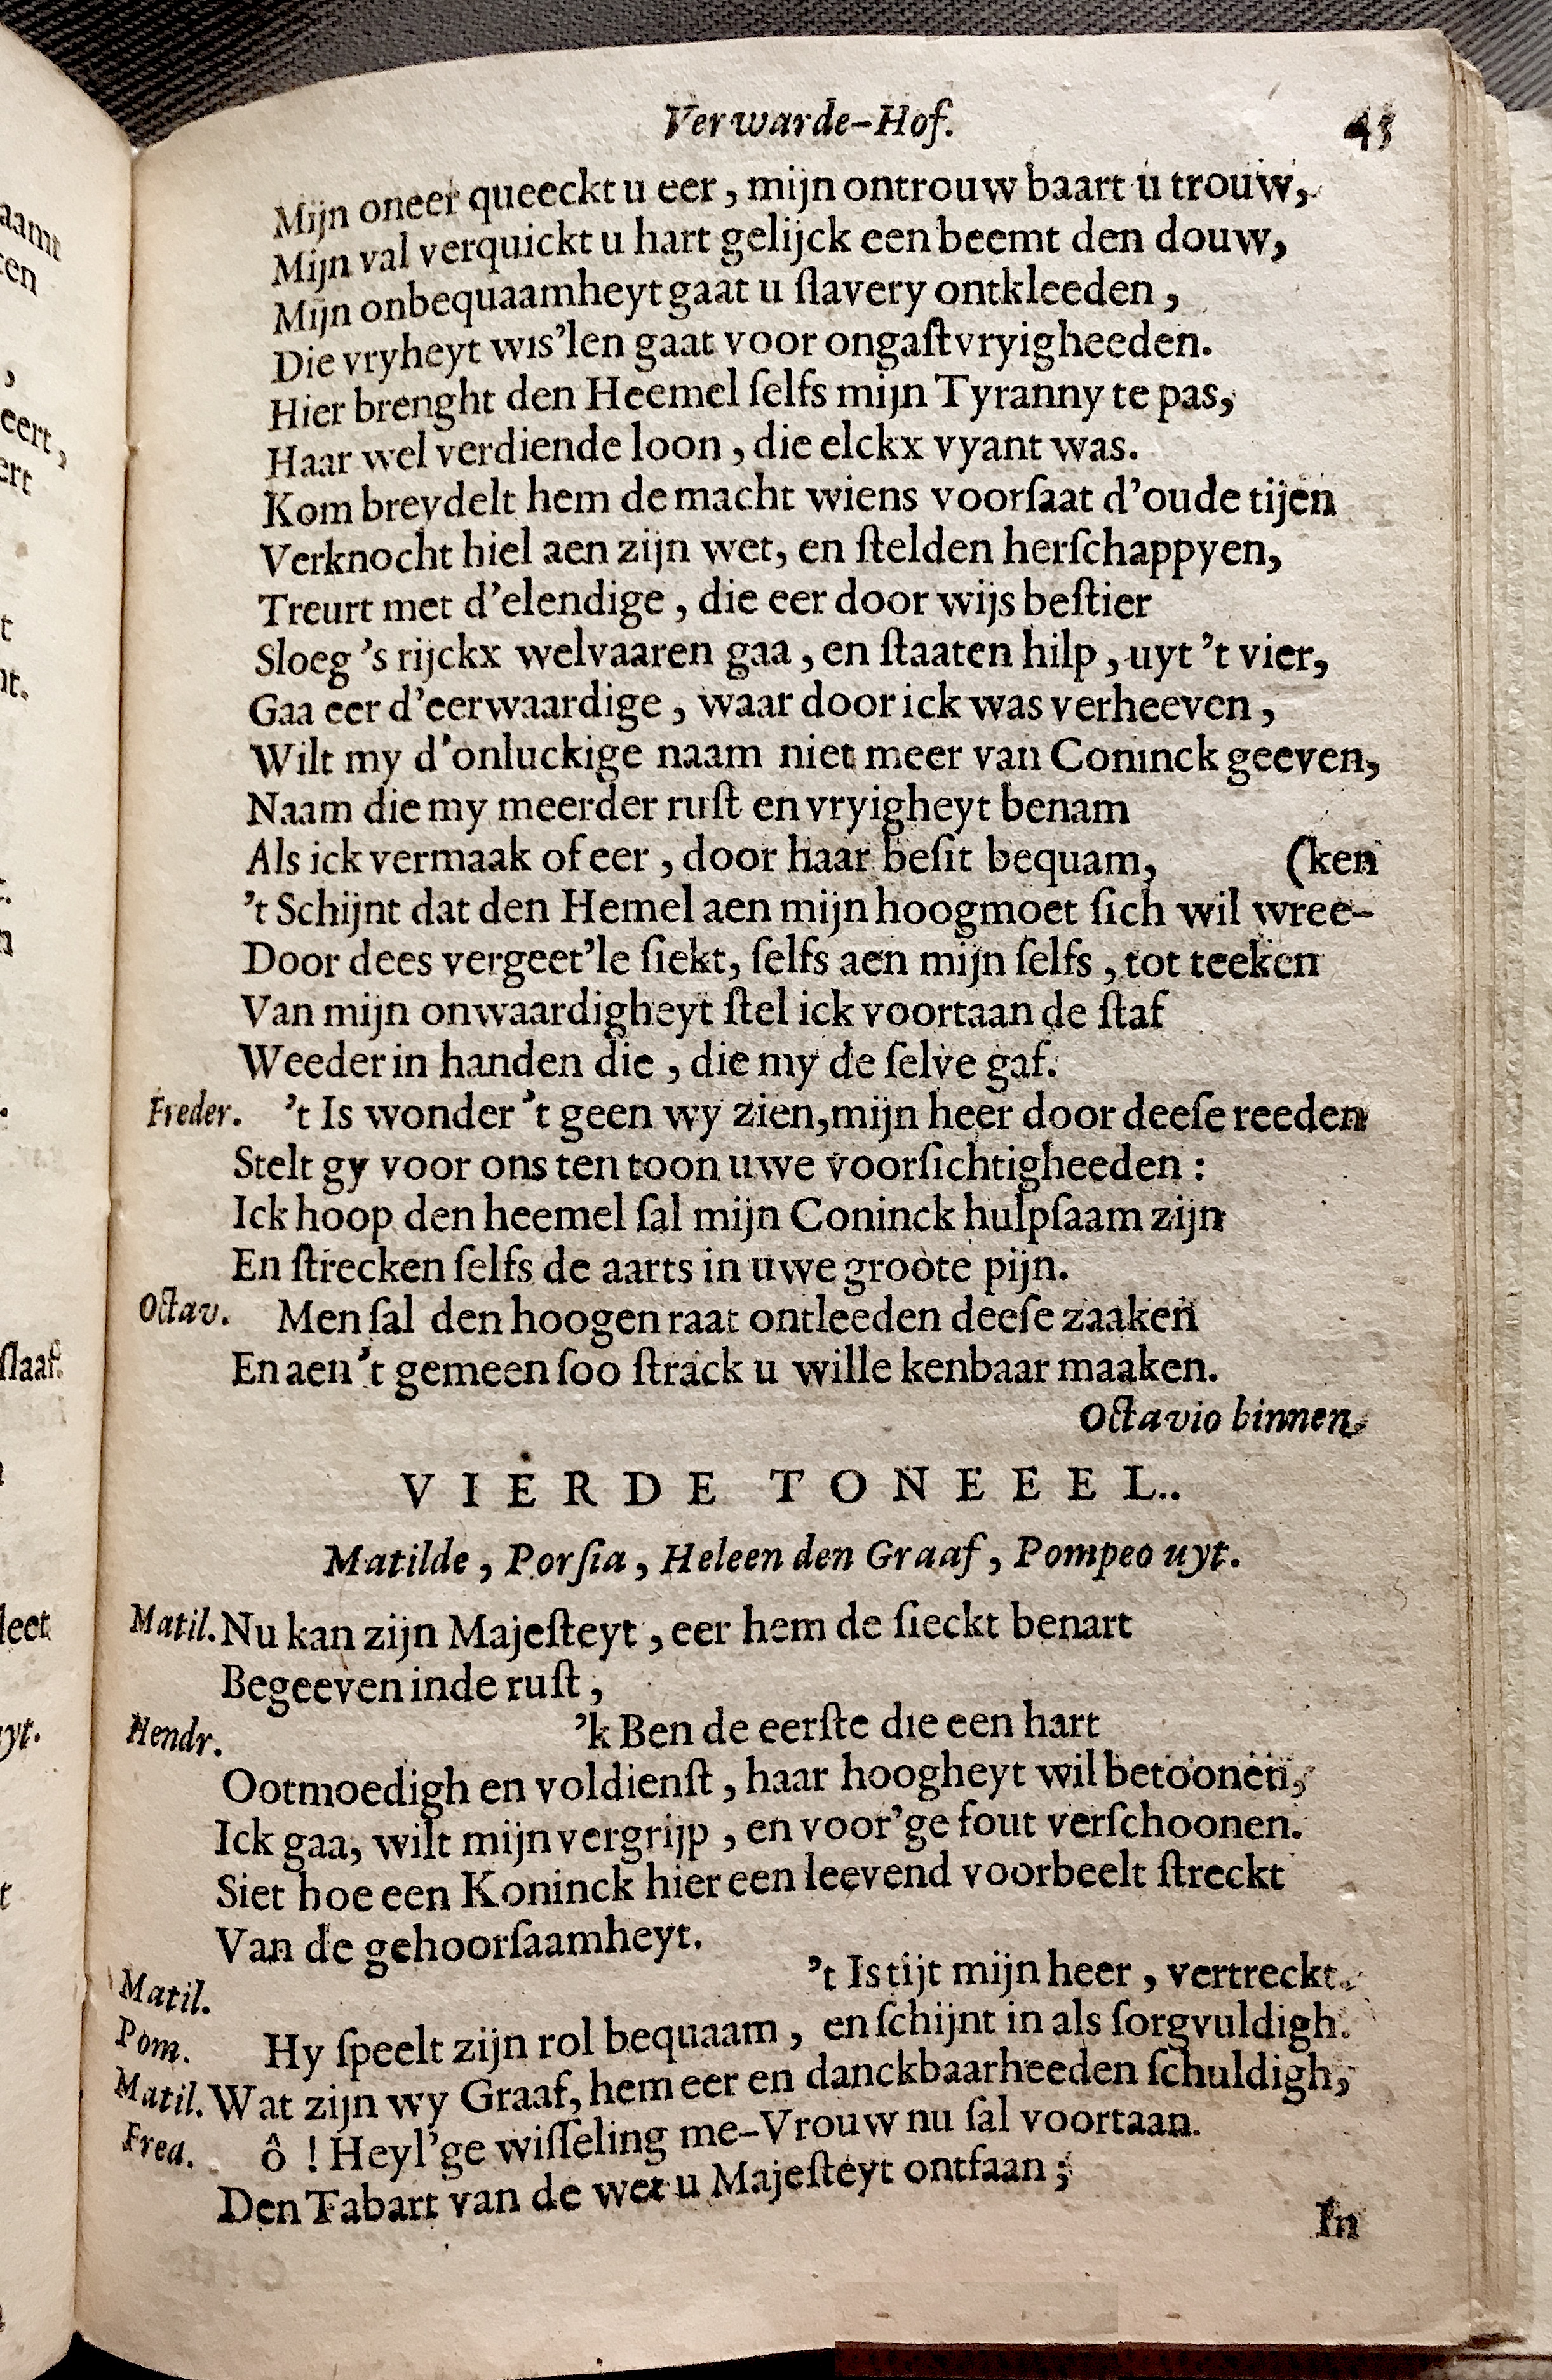 Verwarde-Hof. 43
Mijn oneer queeckt u eer, mijn ontrouw baart u trouw,
Mijn val verquickt u hart gelijck een beemt den douw,
Mijn onbequaamheyt gaat u ſlavery ontkleeden,
Die vryheyt wis'len gaat voor ongaſtvryigheeden.
Hier brenght den Heemel ſelfs mijn Tyranny te pas,
Haar wel verdiende loon, die elckx vyant was.
Kom breydelt hem de macht wiens voorſaat d'oude tijen
Verknocht hiel aen zijn wet, en ſtelden herſchappyen,
Treurt met d'elendige, die eer door wijs beſtier
Sloeg 's rijckx welvaaren gaa, en ſtaaten hilp, uyt 't vier,
Gaa eer d'eerwaardige, waar door ick was verheeven,
Wilt my d'onluckige naam niet meer van Coninck geeven,
Naam die my meerder ruſt en vryigheyt benam
Als ick vermaak of eer, door haar beſit bequam, (ken
't Schijnt dat den Hemel aen mijn hoogmoet ſich wil wree-
Door dees vergeet'le ſiekt, ſelfs aen mijn ſelfs, tot teeken
Van mijn onwaardigheyt ſtel ick voortaan de ſtaf
Weeder in handen die, die my de ſelve gaf.
Freder. 't Is wonder 't geen wy zien, mijn heer door deeſe reeden
Stelt gy voor ons ten toon uwe voorſichtigheeden:
Ick hoop den heemel ſal mijn Coninck hulpſaam zijn
En ſtrecken ſelfs de aarts in uwe groote pijn.
Octav. Men ſal den hoogen raat ontleeden deeſe zaaken
En aen 't gemeen ſoo ſtrack u wille kenbaar maaken.
Octavio binnen.
VIERDE TONEEEL..
Matilde, Porſia, Heleen den Graaf, Pompeo uyt.
Matil. Nu kan zijn Majeſteyt, eer hem de ſieckt benart
Begeeven inde ruſt,
Hendr. 'k Ben de eerſte die een hart
Ootmoedigh en voldienſt, haar hoogheyt wil betoonen,
Ick gaa, wilt mijn vergrijp, en voor'ge fout verſchoonen.
Siet hoe een Koninck hier een leevend voorbeelt ſtreckt
Van de gehoorſaamheyt.
Matil. 't Is tijt mijn heer, vertreckt.
Pom. Hy ſpeelt zijn rol bequaam, en ſchijnt in als ſorgvuldigh.
Matil. Wat zijn wy Graaf, hem eer en danckbaarheeden ſchuldigh,
Fred. ô! Heyl'ge wiſſeling me-Vrouw nu ſal voortaan.
Den Tabart van de wet u Majeſteyt ontfaan;
In